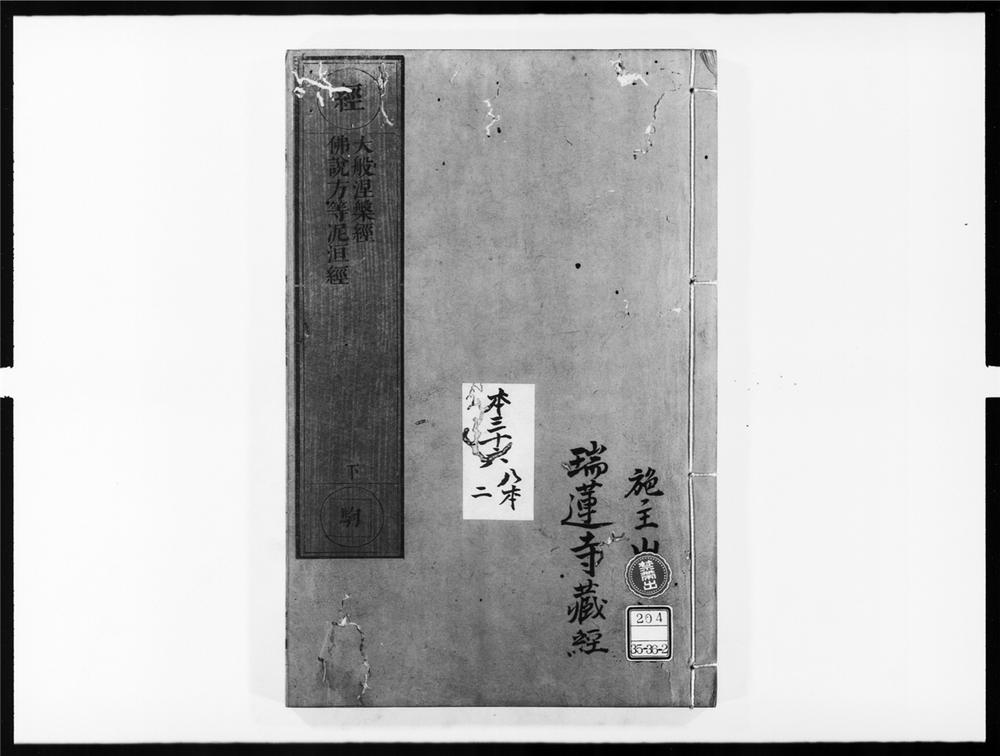 施主山
瑞蓮寺藏經
禁帶出
204
35-36-2
本三十六
八本
二
經
大般涅槃經
佛說方等泥洹經
下
駒